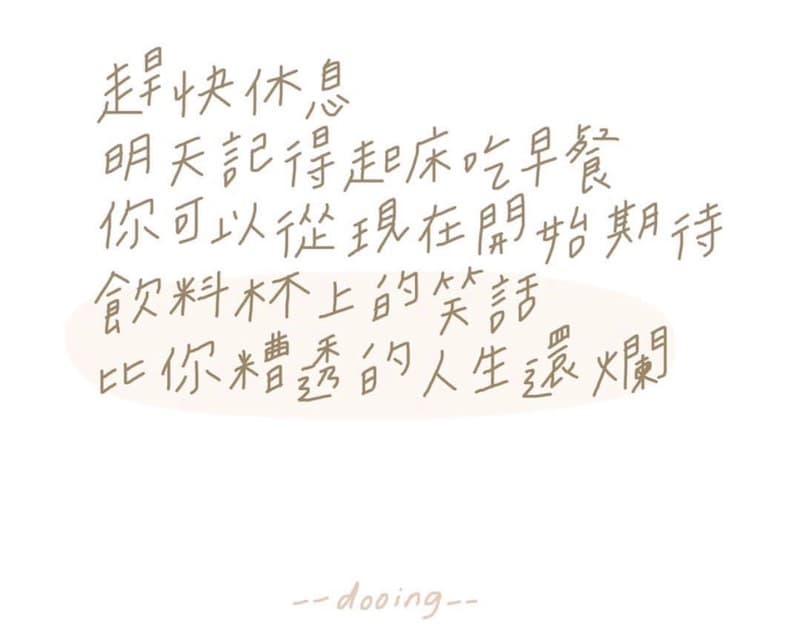 趕快休息
明天記得起床吃早餐
你可以從現在開始期待
飲料杯上的笑話
比你糟透的人生還爛
--dooing--